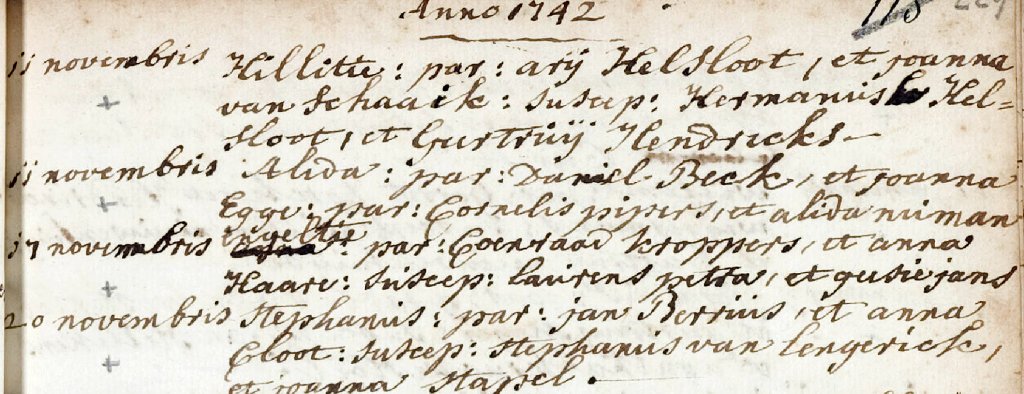 Anno 1742
11 novembris Hillitie: par: arij Helsloot, et joanna
van Schaaik: suscep: Hermanus Hel=
sloot, et Gurtruij Hendricks
11 novembris Alida: par: Daniel Beck, et joanna
Egge: par: Cornelis pipers, et alida numan
17 novembris engeltie: par: Coenraad kroppers, et anna
Haare: suscep: laurens petra, et gusie jans
20 novembris Stephanus: par: jan Berrius, et anna
Cloot: suscep: stephanus van lengerick,
et joanna stapel.